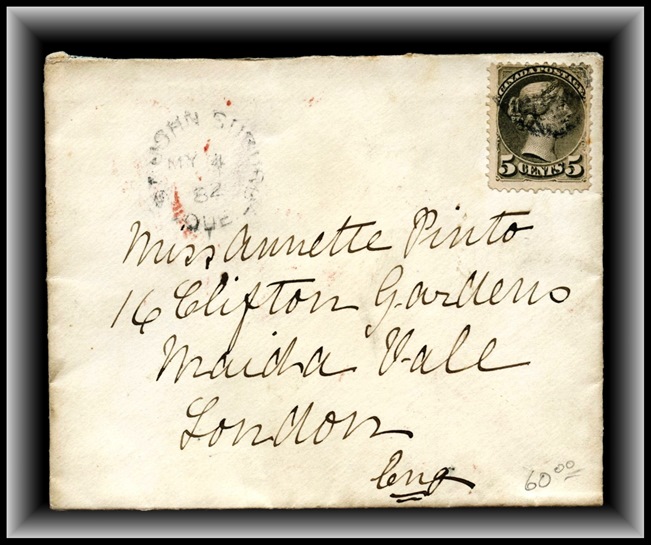 CANADA POSTAGE
5 CENTS 5
ST JOHN SUBURBS
MY 4
82
QUE
Miss Annette Pinto
16 Clifton Gardens
Maida Vale
London
Eng
60 00